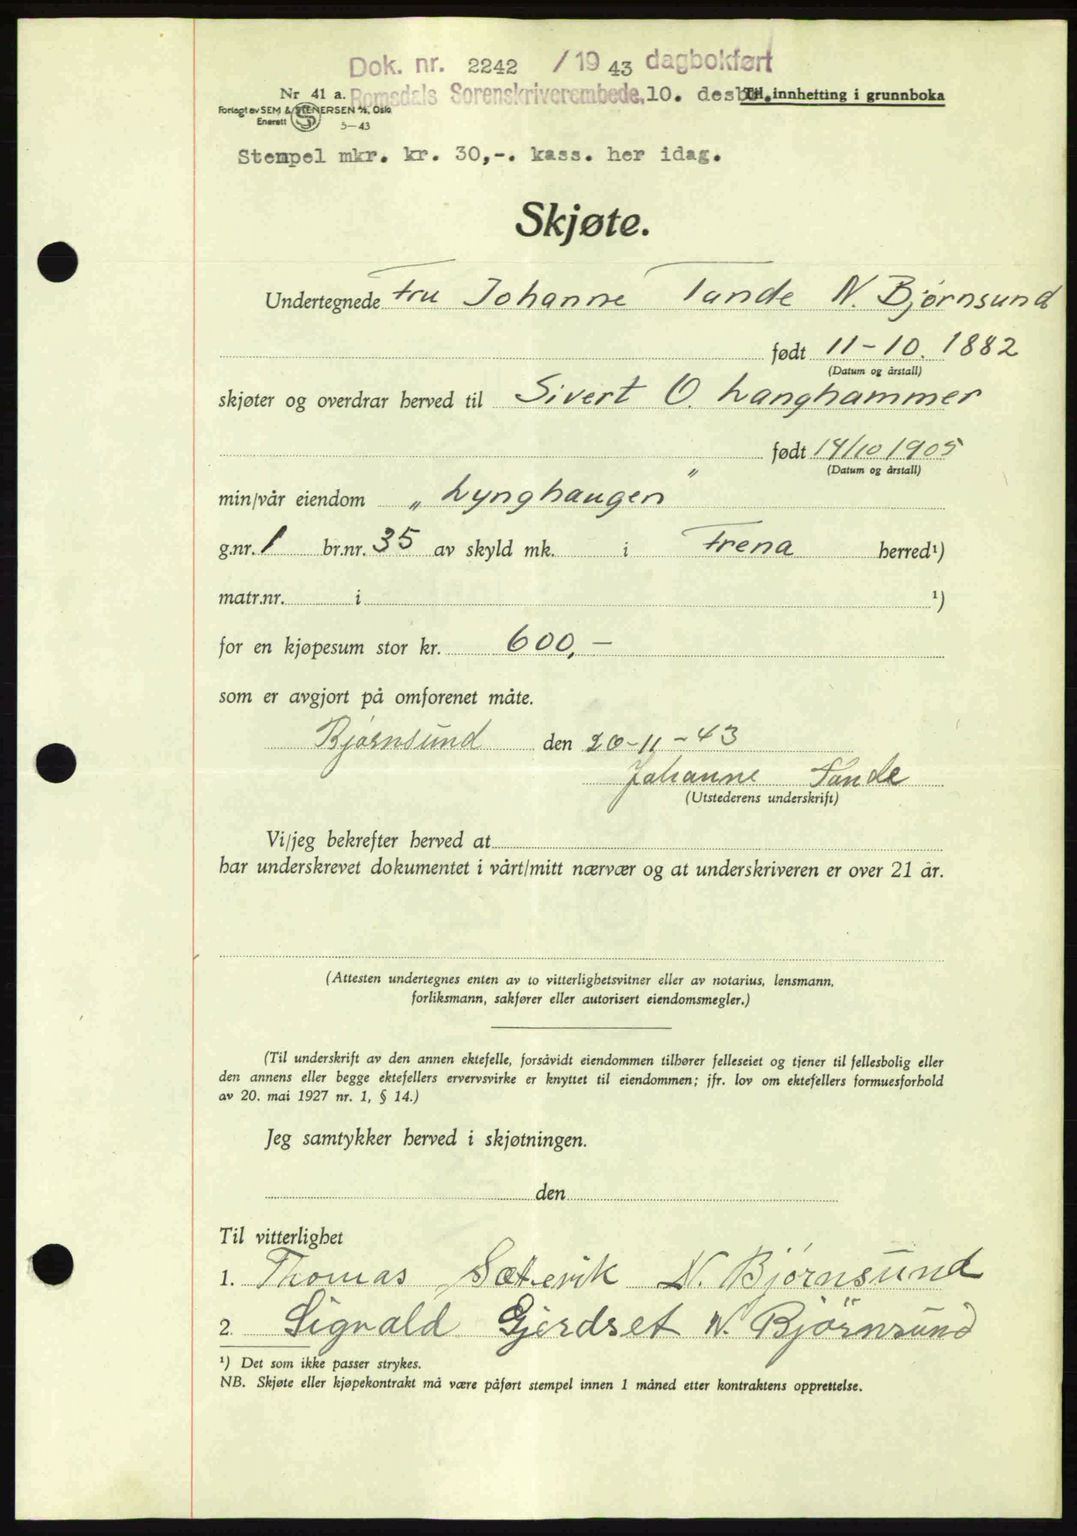 Dok. nr. 2242 /1943 dagbokført
Nr 41 a. Romsdals Sorenskriverembede, 10. desbr. Til innhefting i grunnboka
Forlagt av SEM & STENERSEN A/S, Oslo
Enerett 5—43
Stempel mkr. kr. 30,-. kass. her idag.
Skjøte.
Undertegnede Fru Johanne Tande N. Bjørnsund
født 11-10. 1882
(Datum og årstall)
skjøter og overdrar herved til Sivert O. Langhammer
født 14/10 1905
(Datum og årstall)
min/vår eiendom „Lynghaugen"
g.nr. 1 br.nr. 35 av skyld mk. i Frena herred¹)
matr.nr. i ¹)
for en kjøpesum stor kr. 600,-
som er avgjort på omforenet måte.
Bjørnsund den 20-11-43
Johanne Tande
(Utstederens underskrift)
Vi/jeg bekrefter herved at
har underskrevet dokumentet i vårt/mitt nærvær og at underskriveren er over 21 år.
(Attesten undertegnes enten av to vitterlighetsvitner eller av notarius, lensmann,
forliksmann, sakfører eller autorisert eiendomsmegler.)
(Til underskrift av den annen ektefelle, forsåvidt eiendommen tilhører felleseiet og tjener til fellesbolig eller
den annens eller begge ektefellers ervervsvirke er knyttet til eiendommen; jfr. lov om ektefellers formuesforhold
av 20. mai 1927 nr. 1, § 14.)
Jeg samtykker herved i skjøtningen.
den
Til vitterlighet
1. Thomas Sætervik N. Bjørnsund
2. Sigvald Gjerdset N. Bjørnsund
¹) Det som ikke passer strykes.
NB. Skjøte eller kjøpekontrakt må være påført stempel innen 1 måned etter kontraktens opprettelse.